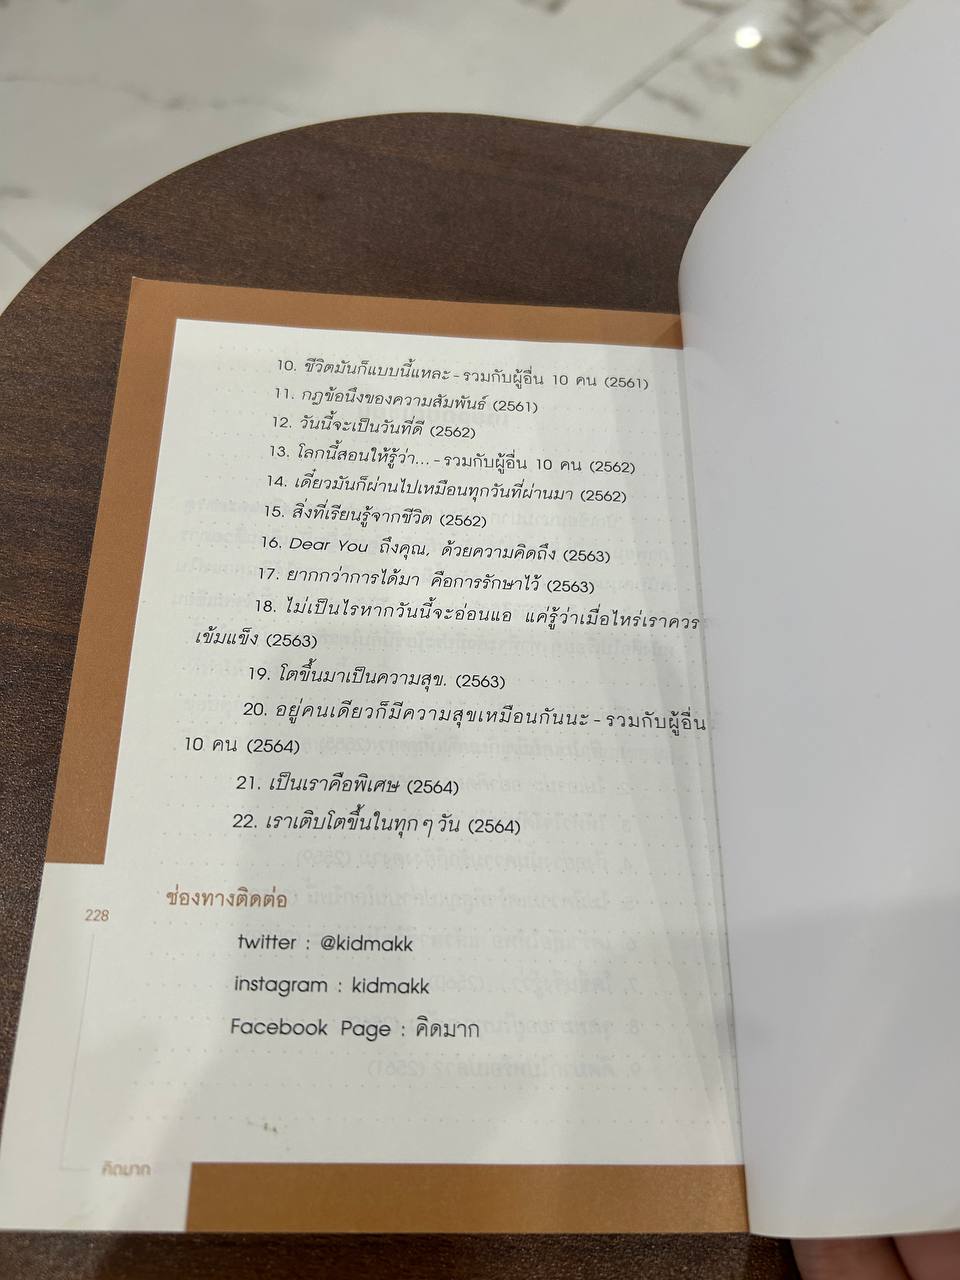 10. ชีวิตมันก็แบบนี้แหละ - รวมกับผู้อื่น 10 คน (2561)
11. กฎข้อนึงของความสัมพันธ์ (2561)
12. วันนี้จะเป็นวันที่ดี (2562)
13. โลกนี้สอนให้รู้ว่า... - รวมกับผู้อื่น 10 คน (2562)
14. เดี๋ยวมันก็ผ่านไปเหมือนทุกวันที่ผ่านมา (2562)
15. สิ่งที่เรียนรู้จากชีวิต (2562)
16. Dear You ถึงคุณ, ด้วยความคิดถึง (2563)
17. ยากกว่าการได้มา คือการรักษาไว้ (2563)
18. ไม่เป็นไรหากวันนี้จะอ่อนแอ แค่รู้ว่าเมื่อไหร่เราควร
เข้มแข็ง (2563)
19. โตขึ้นมาเป็นความสุข. (2563)
20. อยู่คนเดียวก็มีความสุขเหมือนกันนะ - รวมกับผู้อื่น
10 คน (2564)
21. เป็นเราคือพิเศษ (2564)
22. เราเติบโตขึ้นในทุก ๆ วัน (2564)
ช่องทางติดต่อ
228
twitter : @kidmakk
instagram : kidmakk
Facebook Page : คิดมาก
คิดมาก